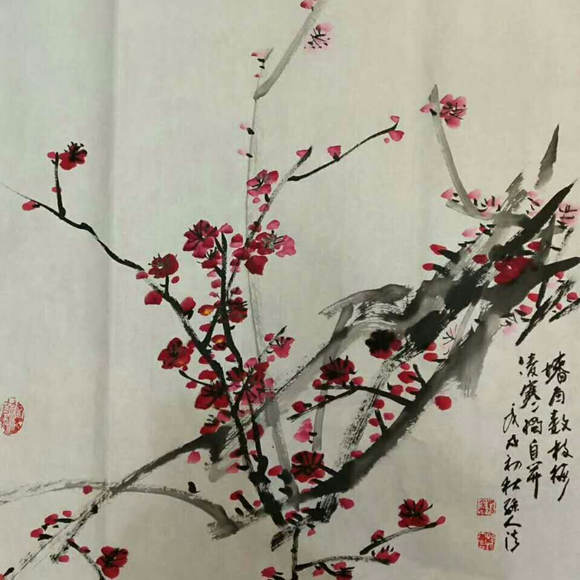 墙角数枝梅
凌寒独自开
戊戌初秋